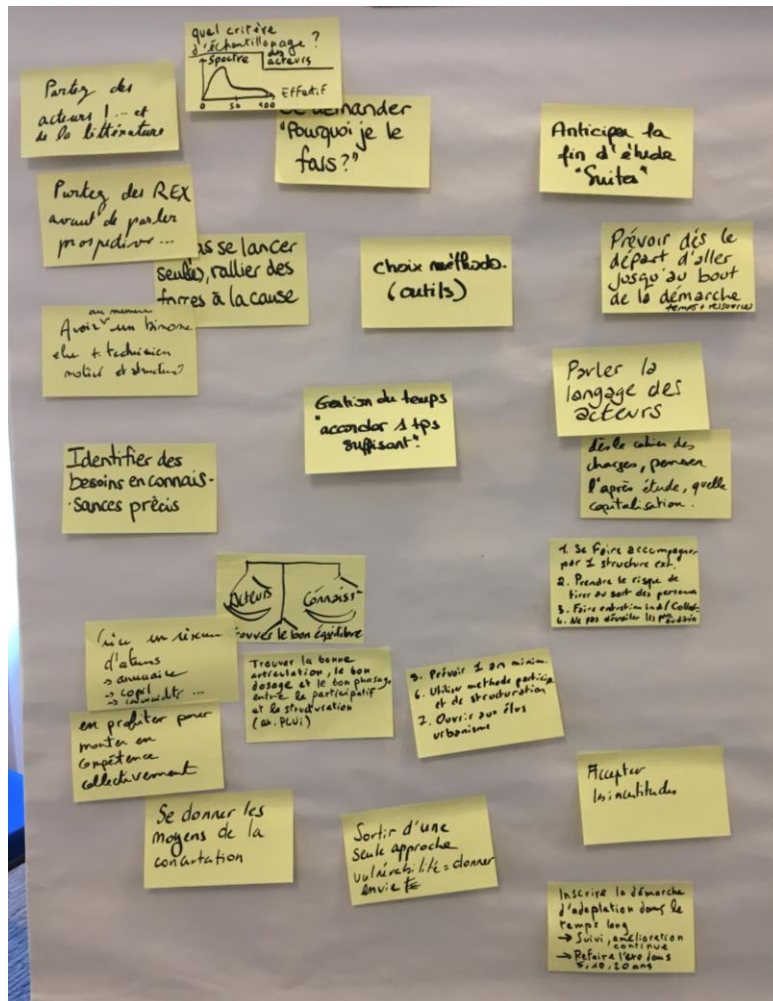 quel critère
d'échantillonage ?
Spectre des
acteurs
Effectif
0 50 100
Partez des
acteurs ! ... et
de la littérature
Se demander
"Pourquoi je le
fais?"
Anticiper la
fin d'étude
"Suites"
Partez des REX
avant de parler
prospective ...
se lancer
seul(e)s, rallier des
forces à la cause
choix méthodo.
(outils)
Prévoir dès le
départ d'aller
jusqu'au bout
de la démarche
temps + ressources
au minimum
Avoir un binome
élu + technicien
moteur et structurant
Gestion du temps
"accorder 1 tps
suffisant"
Parler la
langage des
acteurs
dès le cahier des
charges, penser
l'après étude, quelle
capitalisation.
Identifier des
besoins en connais-
sances précis
1. Se faire accompagner
par 1 structure ext.
2. Prendre le risque de
tirer au sort des personnes
3. Faire entretien ind/Collec.
4. Ne pas dévoiler les
Acteurs Connaiss
trouver le bon équilibre
Créer un réseau
d'acteurs
→ annuaire
→ copil
→
Trouver la bonne
articulation, le bon
dosage et le bon phasage
entre le participatif
et la structuration
(ex. PLUi)
5. Prévoir 1 an minim.
6. Utiliser methode particip.
et de structuration
7. Ouvrir aux élus
urbanisme
en profiter pour
monter en
compétence
collectivement
Accepter
les incertitudes
Se donner les
moyens de la
concertation
Sortir d'une
seule approche
vulnérabilité = donner
envie
Inscrire la démarche
d'adaptation dans le
temps long
→ Suivi, amélioration
continue
→ Refaire l'exo dans
5, 10, 20 ans